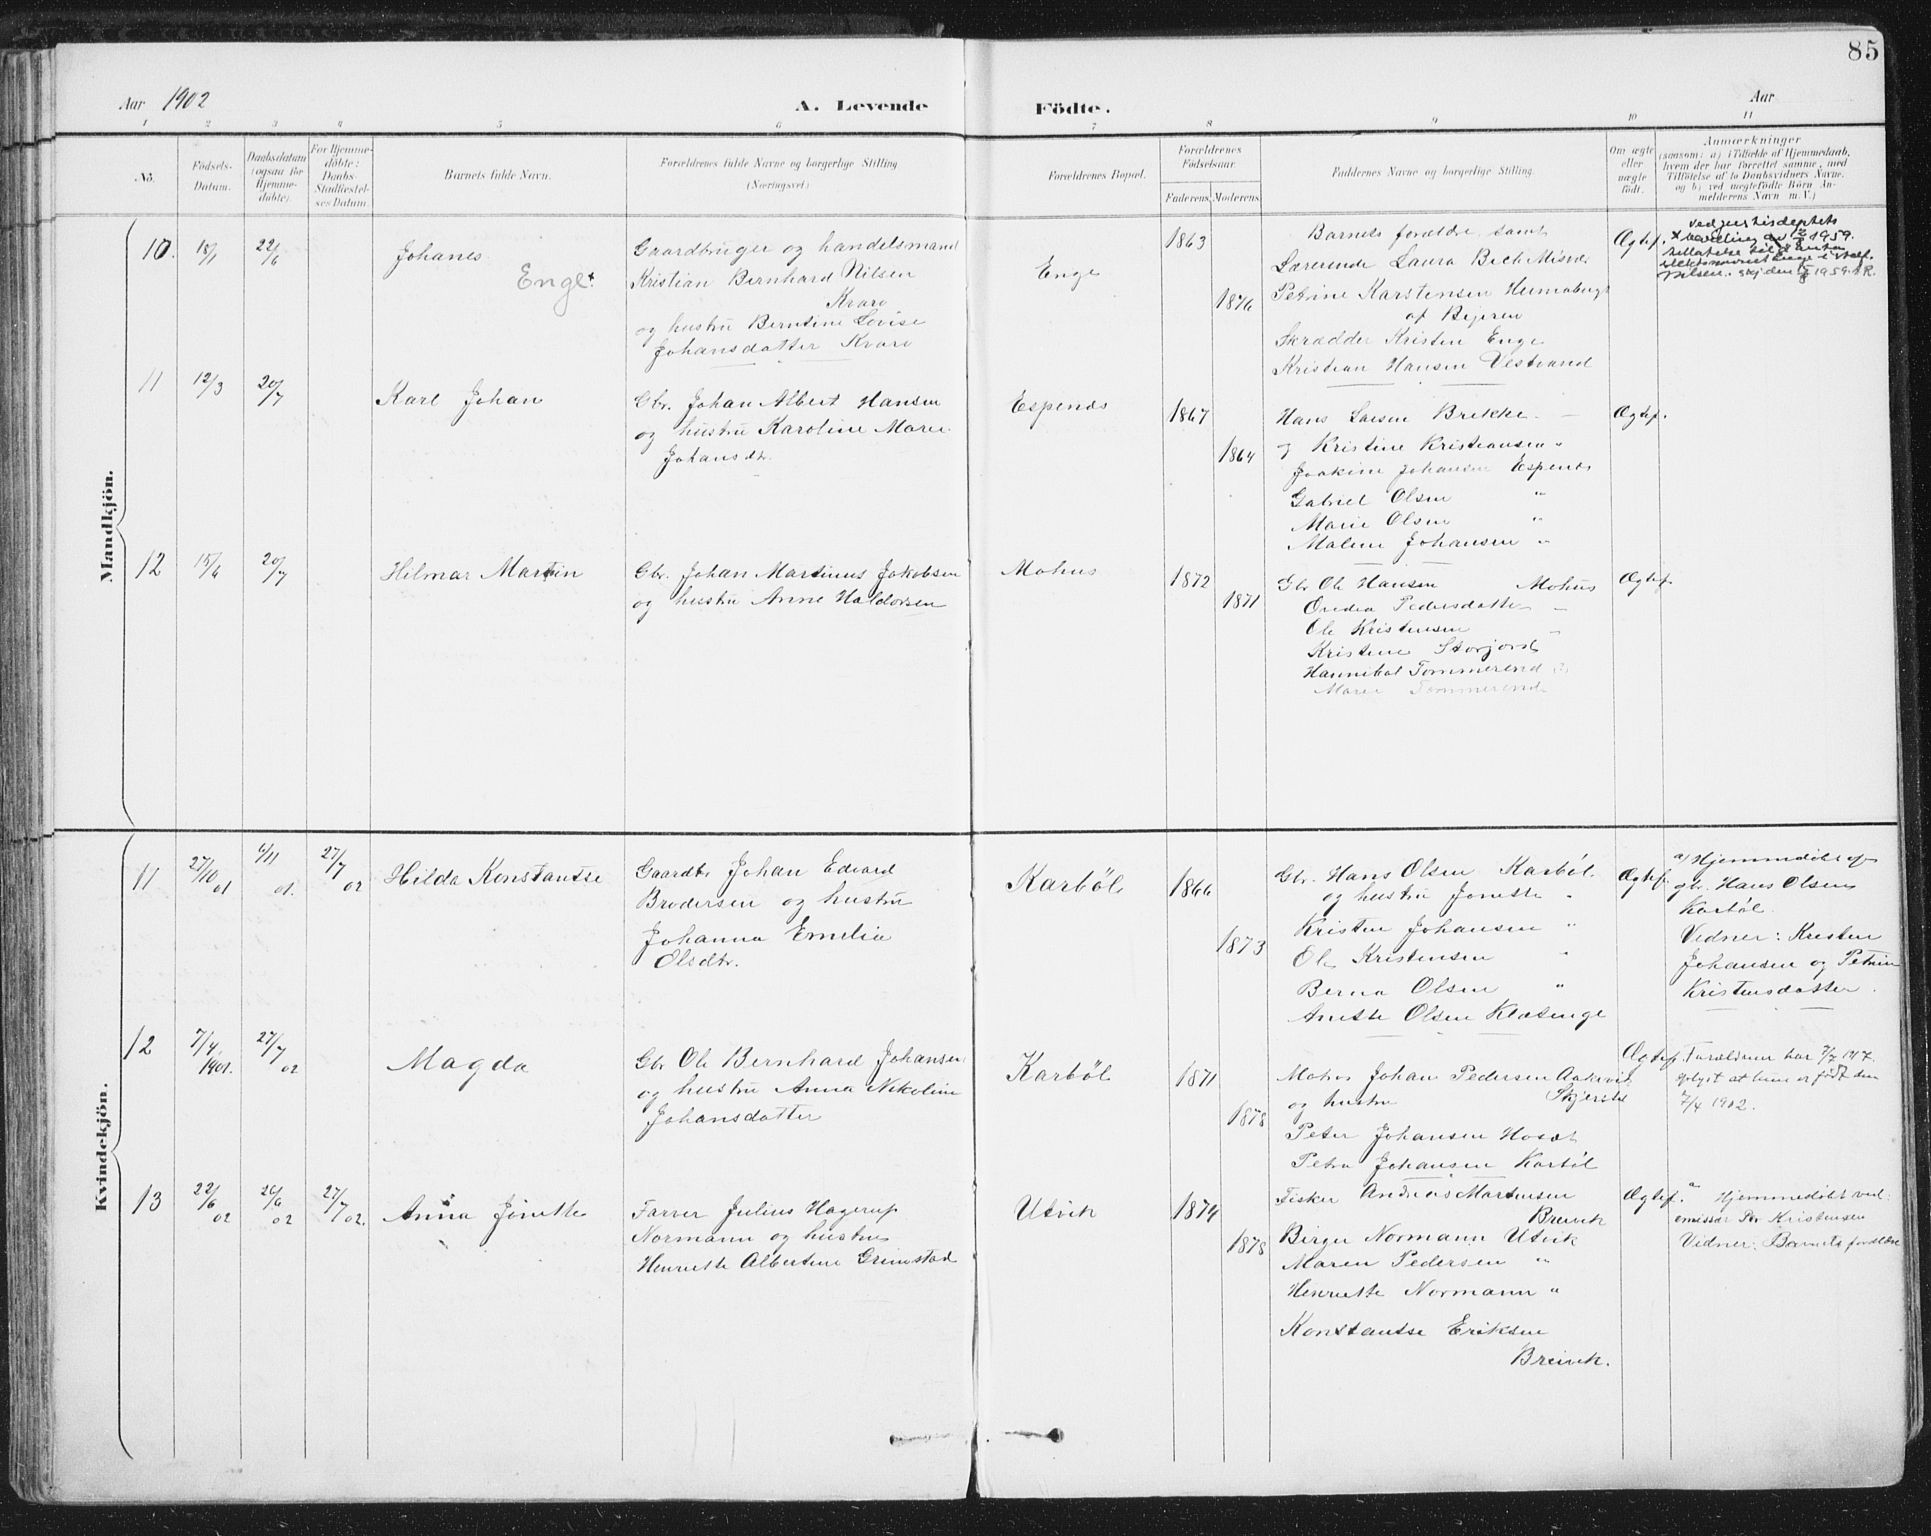 85
Aar 1902
A. Levende
Födte.
Aar
1 2 3 4 5 6 7 8 9 10 11
No.
Födsels-
Datum.
Daabsdatum
(ogsaa for
Hjemme-
döbte).
For Hjemme-
döbte:
Daabs-
Stadfæstel-
ses Datum.
Barnets fulde Navn.
Forældrenes fulde Navne og borgerlige Stilling
(Næringsvei)
Forældrenes Bopæl.
Forældrenes
Födselsaar.
Faderens. Moderens.
Faddernes Navne og borgerlige Stilling.
Om ægte
eller
uægte
födt.
Anmærkninger
(saasom: a) i Tilfælde af Hjemmedaab,
hvem der har forrettet samme, med
Tilföielse af to Daabsvidners Navne,
og b) ved uægtefödte Börn An-
melderens Navn m. V.)
Mandkjön.
10. 18/1 22/6
Johanes
Enge
Gaardbruger og handelsmand
Kristian Bernhard Nilsen
Kvarv
og hustru Berntine Lovise
Johansdatter Kvarv
Enge
1863
1876
Barnets forældre samt
Lærerinde Laura Bech Misvær
Petrine Karstensen
af Bejeren
Skrædder Kristen Enge
Kristian Hansen Vestvand
Ægtef.
1959.
Nilsen. 1959.
11 12/3 20/7
Karl Johan
Gbr. Johan Albert Hansen
og hustru Karoline Marie
Johansdtr.
Espenæs
1867
1864
Hans Larsen Brekke
og Kristine Kristiansen "
Joakim Johansen Espenæs
Gabriel Olsen "
Marie Olsen "
Malene Johansen "
Ægtef.
12 15/4 20/7
Hilmar Martin
Gbr. Johan Martinus Jakobsen
og hustru Anne Haldorsen
Mohus
1872
1871
Gbr Ole Hansen Mohus
Ovedia Pedersdatter "
Ole Kristensen "
Kristine Storjord
Hannibal Tømmerend
Maren Tømmerend
Ægtef.
Kvindekjön.
11 27/10 01 6/11 01. 27/7 02
Hilda Konstantse
Gaardbr Johan Edvard
Brodersen og hustru
Johanna Emelia
Olsdtr.
Karbøl
1866
1873
Gbr. Hans Olsen Karbøl
og hustru Jonette "
Kristen Johansen "
Ole Kristensen "
Berna Olsen "
Anette Olsen Klætenge
Ægtef.
a/ Hjemmedøbt af
gbr. Hans Olsen
Karbøl.
Vidner: Kristen
Johansen og Petrine
Kristensdatter.
12 7/4 1901. 27/7 02
Magda
Gbr Ole Bernhard Johansen
og hustru Anna Nikoline
Johansdatter
Karbøl
1871
1878
Johan Pedersen
og hustru Skjerstad
Peter Johansen Hosæt
Petra Johansen Karbøl
Ægtef.
Forældrene har 7/7 1917.
oplyst at hun er født den
7/4 1902.
13 22/6 02 26/6 02 27/7 02.
Anna Jonette
Farver Julius Hagerup
Normann og hustru
Henriette Albertine Grimstad
Utvik
1874
1878
Fisker Andreas Martensen
Breivik
Birger Normann Utvik
Maren Pedersen "
Henriette Normann "
Konstantse Eriksen
Breivik.
Ægtef.
a Hjemmedøbt ved
emissær Per Kristensen
Vidner: Barnets forældre